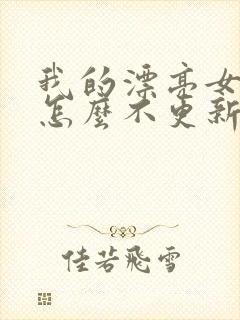 我的漂亮女
怎麼不更新
佳若飛雪